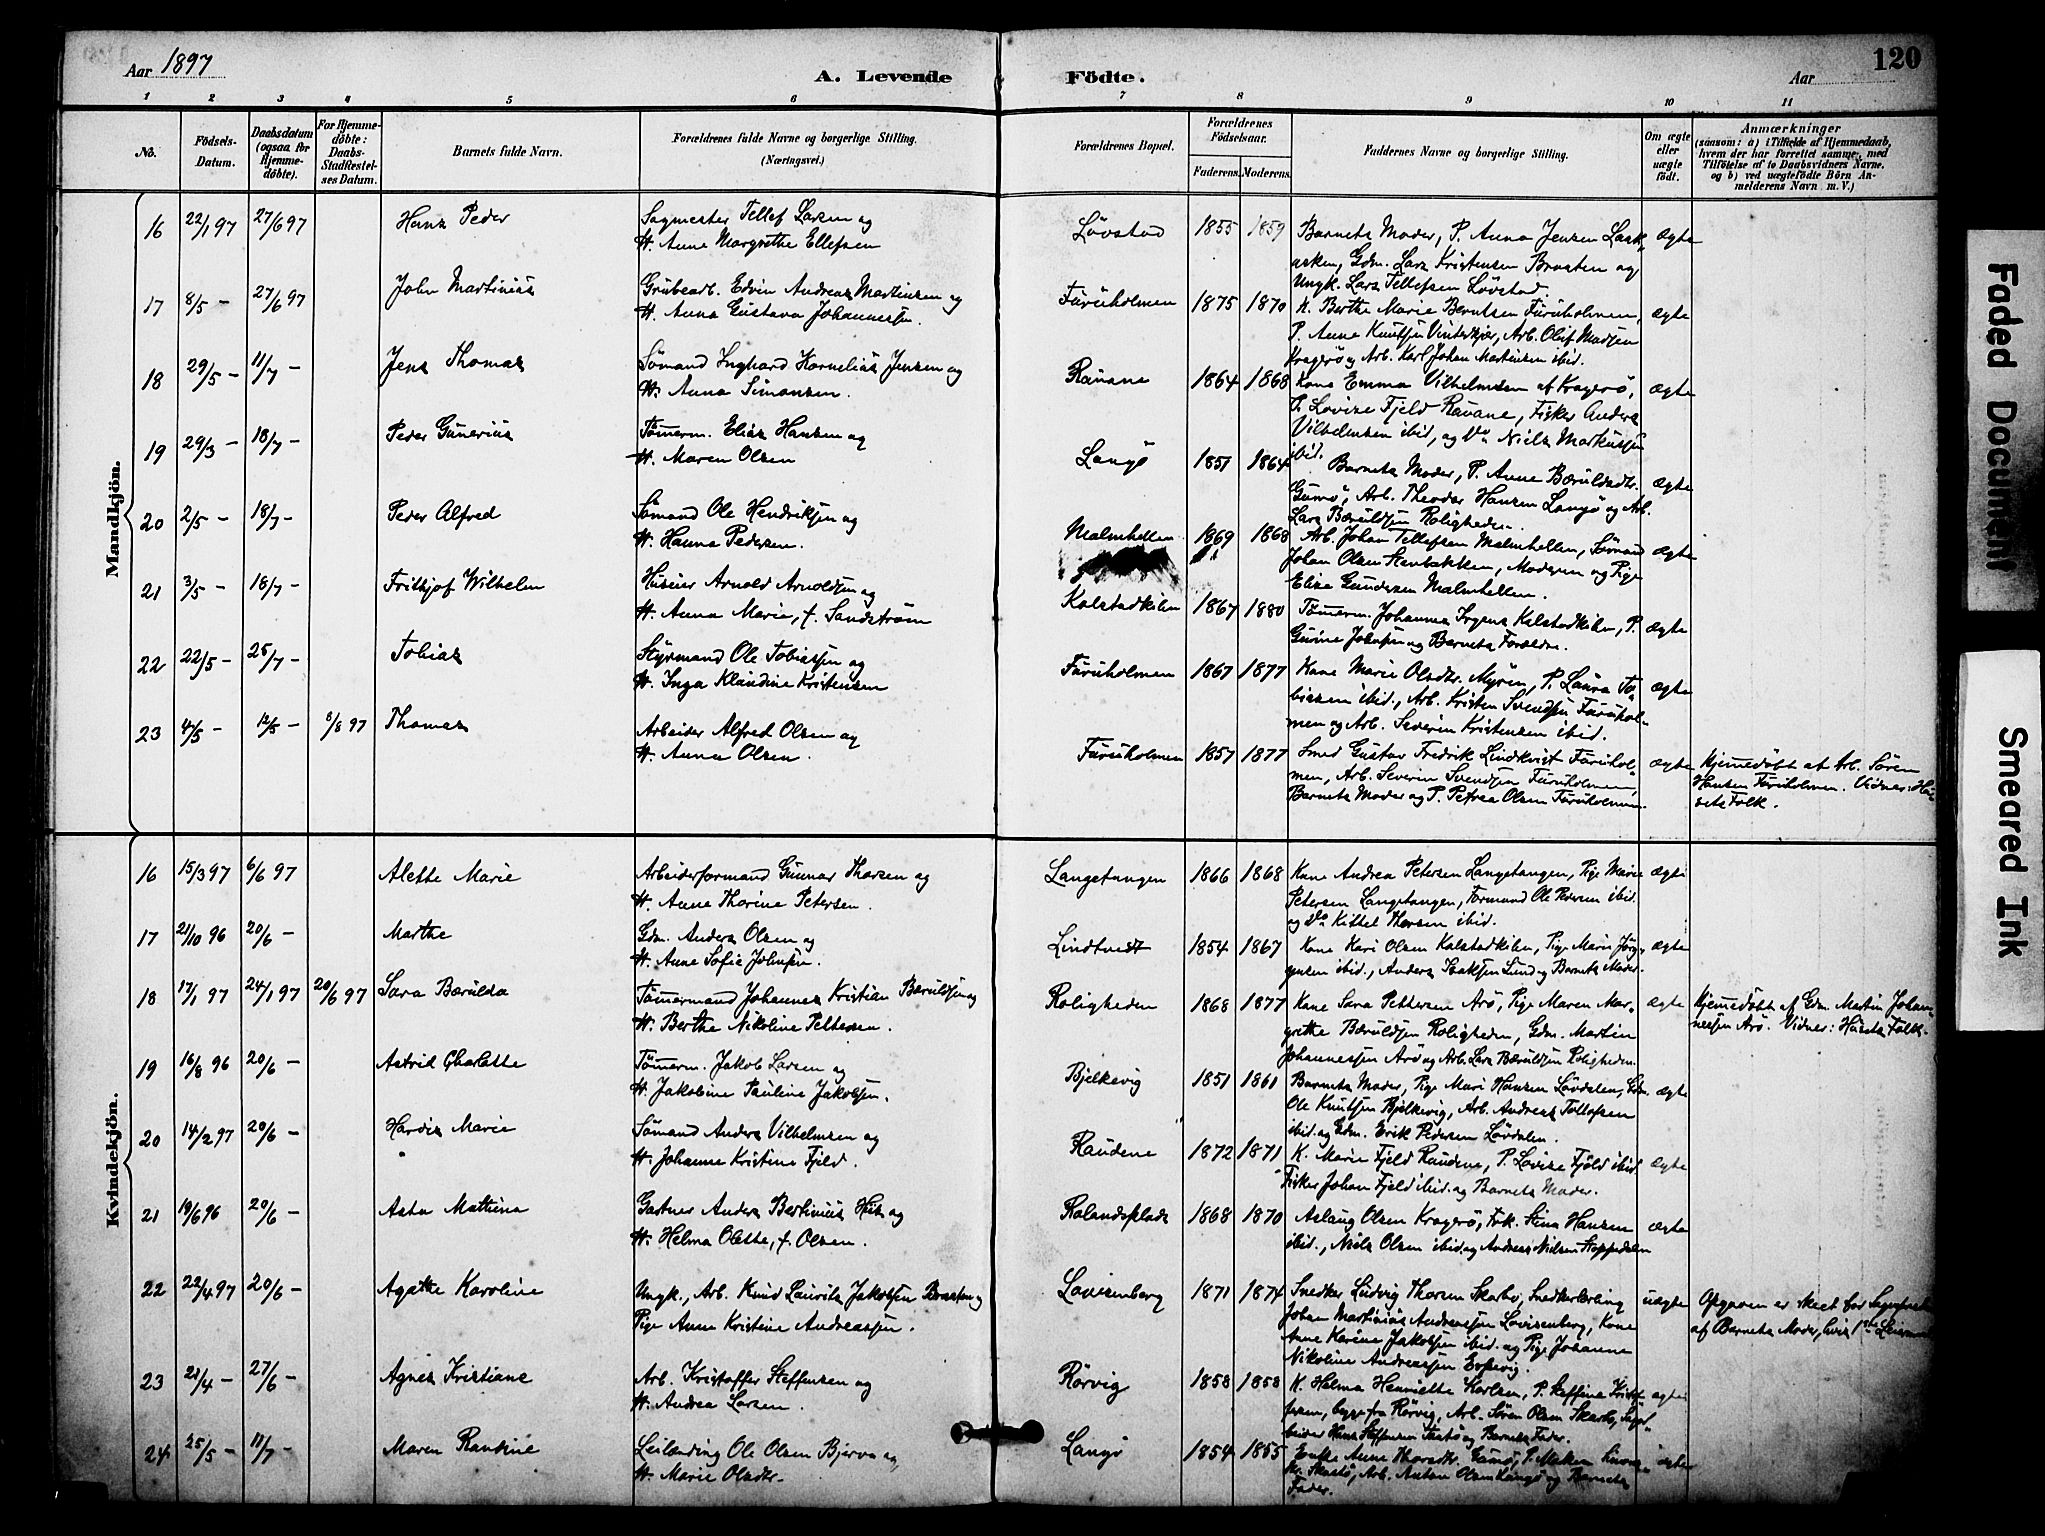 Aar 1897
A. Levende Födte.
Aar
120
1 2 3 4 5 6 7 8 9 10 11
No.
Födsels-Datum.
Daabsdatum (ogsaa for Hjemmedöbte).
For Hjemmedöbte: Daabs-Stadfestelses Datum.
Barnets fulde Navn.
Forældrenes fulde Navne og borgerlige Stilling. (Næringsvei.)
Forældrenes Bopæl.
Forældrenes Födselsaar.
Faderens. Moderens.
Faddernes Navne og borgerlige Stilling.
Om ægte eller uægte födt.
Anmærkninger (saasom: a) i Tilfælde af Hjemmedaab, hvem der har forrettet samme, med Tilföielse af to Daabsvidners Navne. og b) ved uægtefödte Börn Anmelderens Navn m. V.)
Mandkjön.
16 22/1 97 27/6 97 Hans Peder
Sagmester Tellef Larsen og
H. Anne Margrethe Ellefsen
Lövstad 1855 1859
Barnets Moder, P. Anna Jensen
Gdm. Lars Kristensen Braaten og
Ungk. Lars Tellefsen Lövstad.
ægte
17 8/5 - 27/6 97 John Martinius
Grubearb. Edvin Andreas Martinsen og
H. Anna Gustava Johannessen.
Furuholmen 1875 1870
K. Berthe Marie Berntsen Furuholmen,
P. Anne Knutsen Vinterkjær, Arb. Oluf Madsen
Kragerö, Arb. Karl Johan Martinsen ibid.
ægte
18 29/5 - 11/7 - Jens Thomas
Sömand Inghard Kornelius Jensen og
H. Anna Simonsen.
Rauane 1864 1868
Kone Emma Vilhelmsen af Kragerö,
P. Lovise Fjeld Rauane, Fisker Anders
Vilhelmsen ibid, og Do Niels Markussen
ibid.
ægte
19 29/3 - 18/7 - Peder Gunerius
Tömerm. Elias Hansen og
H. Maren Olsen
Langö 1851 1864
Barnets Moder, P. Anne Bæruldsdtr.
Gumö, Arb. Theodor Hansen Langö og Arb.
Lars Bæruldsen Roligheden.
ægte
20 2/5 - 18/7 - Peder Alfred
Sömand Ole Hendriksen og
H. Hanna Pedersen.
Malmhellen 1869 1868
Arb. Johan Tellefsen Malmhellen, Sömand
Johan Olsen Stenbakken, Moderen og Pige
Elise Gundersen Malmhellen.
ægte
21 3/5 - 18/7 - Frithjof Wilhelm
Huseier Arnold Arnoldsen og
H. Anna Marie, f. Sandström
Kalstadkilen 1867 1880
Tömerm. Johannes Kalstadkilen, P.
Gurine Johnsen og Barnets Forældre.
ægte
22 22/5 - 25/7 - Tobias
Styrmand Ole Tobiassen og
H. Inga Klaudine Kristensen
Furuholmen 1867 1877
Kone Marie Olsdtr. Myren, P. Laura To-
biassen ibid., Arb. Kristen Svendsen Furuhol-
men og Arb. Severin Kristensen ibid.
ægte
23 4/5 - 12/5 - 8/8 97 Thomas
Arbeider Alfred Olsen og
H. Anna Olsen.
Furuholmen 1857 1877
Smed Gustav Fredrik Lindkvist Furuhol-
men, Arb. Severin Svendsen Furuholmen,
Barnets Moder og P. Petrea Olsen Furuholmen
ægte
Hjemmedöbt af Arb. Sören
Hansen Furuholmen. Vidner: Hu-
sets Folk.
Kvindekjön.
16 15/3 97 6/6 97 Alette Marie
Arbeiderformand Gunnar Thorsen og
H. Anne Thorine Petersen.
Langetangen 1866 1868
Kone Andrea Petersen Langetangen, Pige Marie
Petersen Langetangen, Formand Ole Petersen ibid.
og Do Kittel Thorsen ibid.
ægte
17 21/10 96 20/6 - Marthe
Gdm. Anders Olsen og
H. Anne Sofie Johnsen.
Lindtvedt 1854 1867
Kone Kari Olsen Kalstadkilen, Pige Marie Jörg-
ensen ibid., Anders Isaksen Lund og Barnets Moder.
ægte
18 17/1 97 24/1 97 20/6 97 Sara Bærulda
Tömermand Johannes Kristian Bæruldsen og
H. Berthe Nikoline Pettersen.
Roligheden 1868 1877
Kone Sara Pettersen Arö, Pige Maren Mar-
grethe Bæruldsen Roligheden, Gdm. Martin
Johannessen Arö og Arb. Lars Bæruldsen Roligheden.
ægte
Hjemmedöbt af Gdm. Martin Johan-
nessen Arö. Vidner: Husets Folk.
19 16/8 96 20/6 - Astrid Charlotte
Tömerm. Jakob Larsen og
H. Jakobine Pauline Jakobsen.
Bjelkevig 1851 1861
Barnets Moder, Pige Mari Hansen Lövdalen, Gdm.
Ole Knutsen Bjelkevig, Arb. Andreas Tollefsen
ibid. og Gdm. Erik Pedersen Lövdalen.
ægte
20 14/2 97 20/6 - Hardis Marie
Sömand Anders Vilhelmsen og
H. Johanne Kristine Fjeld.
Raudene 1872 1871
K. Marie Fjeld Raudene, P. Lovise Fjeld ibid.
Fisker Johan Fjeld ibid. og Barnets Moder.
ægte
21 19/6 96 20/6 - Asta Mathina
Gartner Anders Bertinius Hus og
H. Helma Olette, f. Olsen.
Rolandsplads 1868 1870
Aslaug Olsen Kragerö, Frk. Stina Hansen
ibid., Niels Olsen ibid. og Andreas Nielsen Stoppedalen
ægte
22 22/4 97 20/6 - Agathe Karoline
Ungk., Arb. Knud Laurits Jakobsen Braaten og
Pige Anne Kristine Andreassen.
Lovisenberg 1871 1874
Snedker Ludvig Thorsen Skarbo, Snedkerlærling
Johan Martinius Andreassen Lovisenberg, Kone
Anne Karine Jakobsen ibid. og Pige Johanne
Nikoline Andreassen
uægte
Opgaven er skeet for
af Barnets Moder, hvis 1ste
23 21/4 - 27/6 - Agnes Kristiane
Arb. Kristoffer Steffensen og
H. Andrea Larsen.
Rörvig 1858 1858
K. Helma Henriette Karlsen, P. Steffine Kristof-
fersen, begge fra Rörvig, Arb. Sören Olsen Skarbo,
Hans Steffensen og Barnets Fader.
ægte
24 25/5 - 11/7 - Maren Rantine
Leilending Ole Olsen Bjerva og
H. Marie Olsdtr.
Langö 1854 1855
Enke Anne Thorsdtr. Gumö, P. Maken
Arb. Anton Olsen Langö og Barnets
Fader.
ægte
Faded Document
Smeared Ink